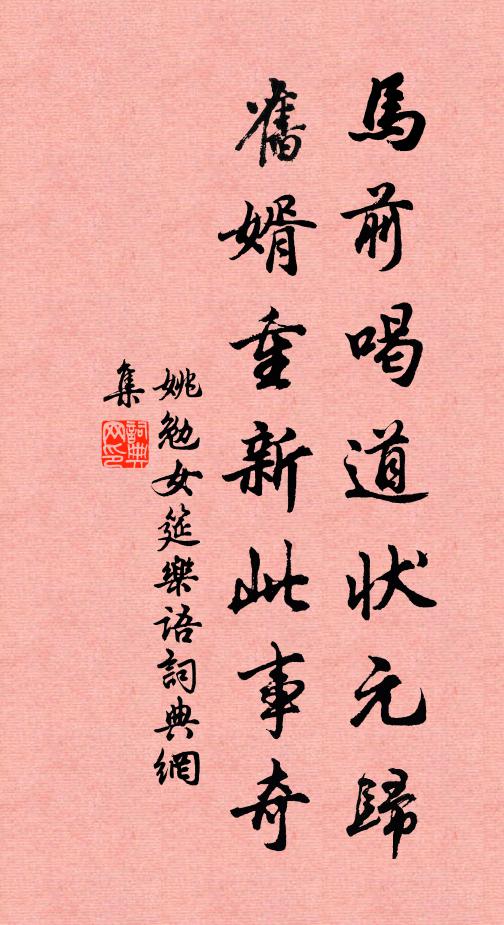 馬前喝道状元歸
舊婿重新此事奇
姚勉女筵樂语詞典網
集
詞典
网印